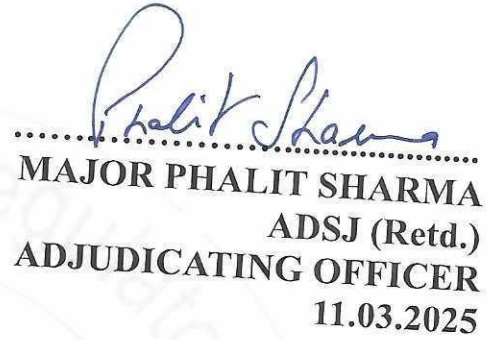 Phalit Sharma
MAJOR PHALIT SHARMA
ADSJ (Retd.)
ADJUDICATING OFFICER
11.03.2025